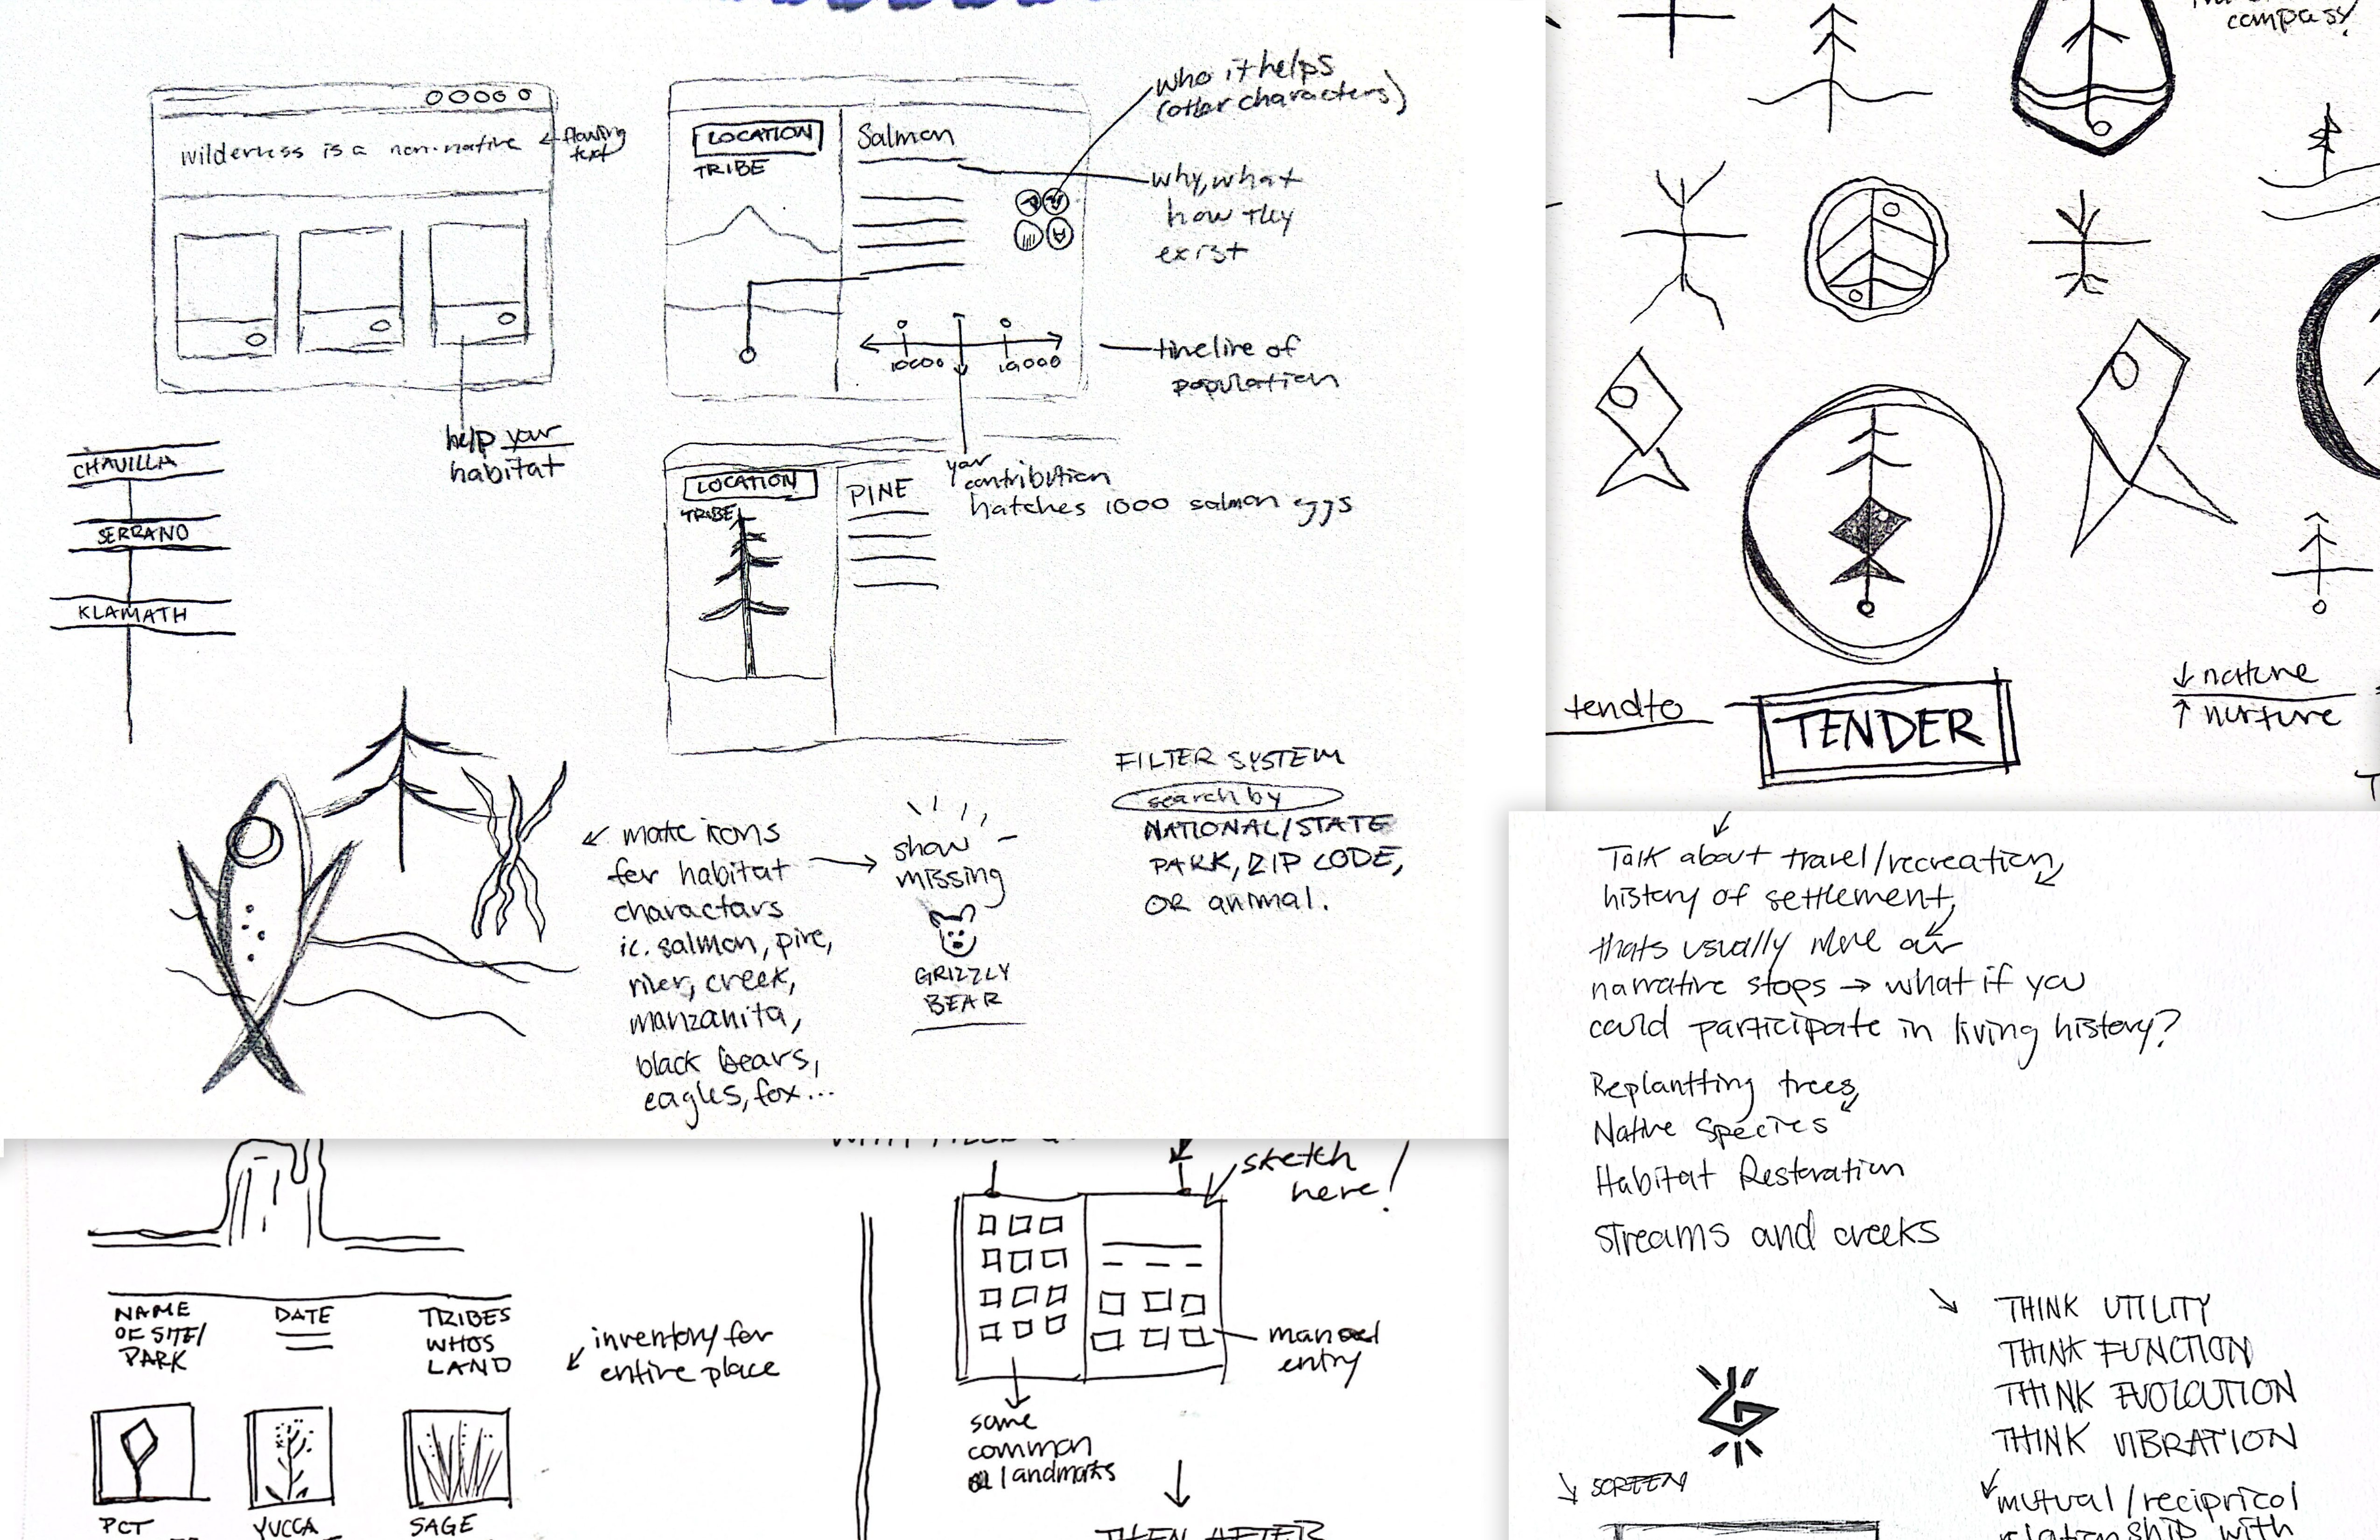 wilderness is a non-native
← flowing
text
help your
habitat
LOCATION
TRIBE
Salmon
who it helps
(other characters)
why, what
how they
exist
10000
10,000
timeline of
population
your
contribution
hatches 1000 salmon eggs
LOCATION
TRIBE
PINE
CHAVILLA
SERRANO
KLAMATH
make icons
for habitat
charactars
ie. salmon, pine,
river, creek,
manzanita,
black bears,
eagles, fox...
show
missing
GRIZZLY
BEAR
FILTER SYSTEM
search by
NATIONAL/STATE
PARK, ZIP CODE,
OR animal.
compass!
tendto
TENDER
↓ nature
↑ nurture
Talk about travel/recreation,
history of settlement,
thats usually where our
narrative stops → what if you
could participate in living history?
Replantting trees,
Native Species
Habitat Restoration
streams and creeks
THINK UTILITY
THINK FUNCTION
THINK EVOLUTION
THINK VIBRATION
mutual/reciprical
relationship with
SCREEN
NAME
OF SITE/
PARK
DATE
TRIBES
WHOS
LAND
inventory for
entire place
PCT
YUCCA
SAGE
sketch
here!
manual
entry
some
common
landmarks
THEN AFTER